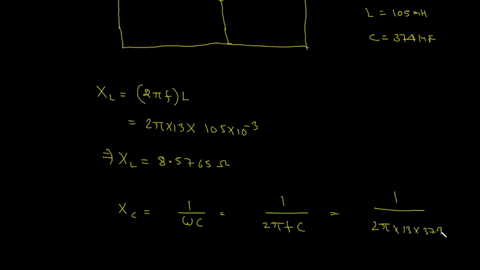 L = 105mH
C = 374MF
X_L = (2πf) L
= 2π×13× 105×10^-3
⇒ X_L = 8.5765 Ω
X_C = 1/ωC = 1/2πfC = 1/2π×13×372